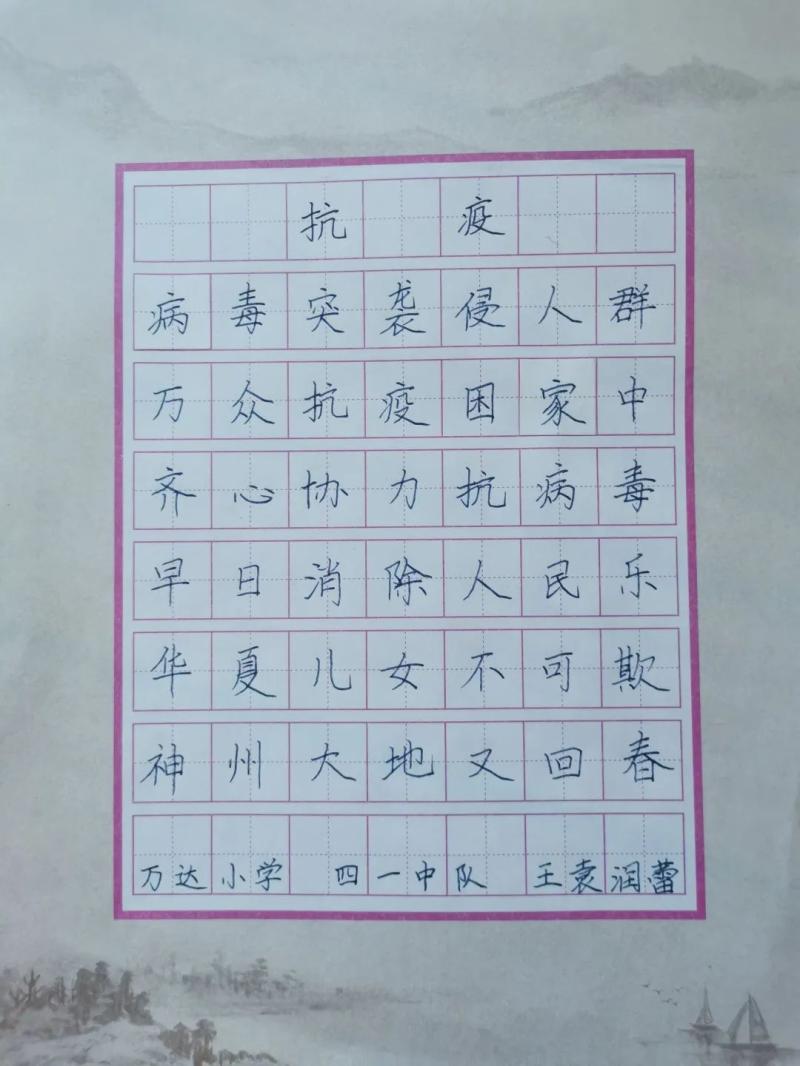 抗 疫
病毒突袭侵人群
万众抗疫困家中
齐心协力抗病毒
早日消除人民乐
华夏儿女不可欺
神州大地又回春
万达小学 四一中队 王袁润蕾